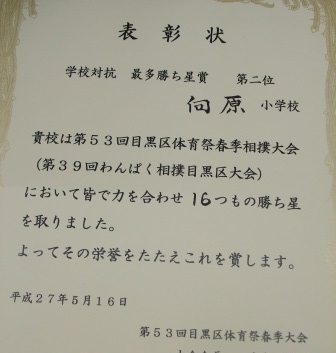 表彰状
学校対抗 最多勝ち星賞 第二位
向原 小学校
貴校は第53回目黒区体育祭春季相撲大会
(第39回わんぱく相撲目黒区大会)
において皆で力を合わせ 16つもの勝ち星
を取りました。
よってその栄誉をたたえこれを賞します。
平成27年5月16日
第53回目黒区体育祭春季大会